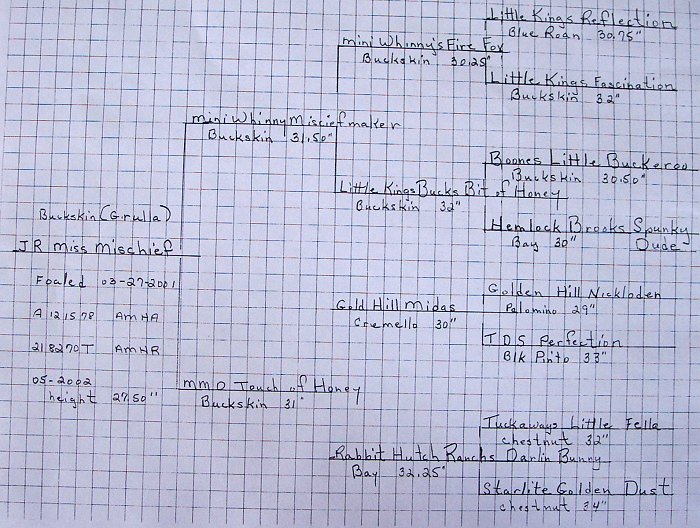 Little Kings Reflection
Blue Roan 30.75"
mini Whinny's Fire Fox
Buckskin 30.25"
Little Kings Fascination
Buckskin 32"
mini Whinny Miscief maker
Buckskin 31.50"
Boones Little Buckeroo
Buckskin 30.50"
Little Kings Bucks Bit of Honey
Buckskin 32"
Hemlock Brooks Spunky
Bay 30" Dude
Buckskin (Grulla)
JR Miss Mischief
Foaled 03-27-2001
A 121578 AMHA
218270T AMHR
05-2002
height 27.50"
Golden Hill Nickloden
Palomino 29"
Gold Hill Midas
Cremello 30"
TDS Perfection
Blk Pinto 33"
MMO Touch of Honey
Buckskin 31"
Tuckaways Little Fella
chestnut 32"
Rabbit Hutch Ranchs Darlin Bunny
Bay 32.25"
Starlite Golden Dust
chestnut 34"